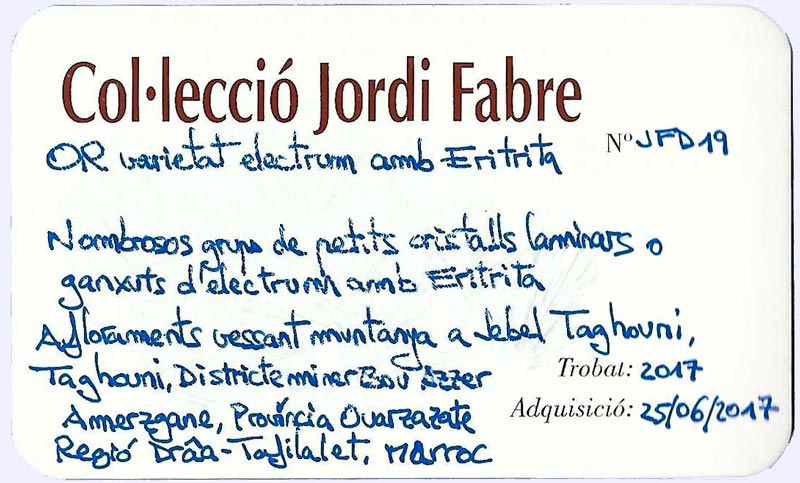 Col·lecció Jordi Fabre
OR varietat electrum amb Eritrita Nº JFD19
Nombrosos grups de petits cristalls laminars o
ganxuts d'electrum amb Eritrita
Afloraments vessant muntanya a Jebel Taghouni,
Taghouni, Districte miner Bou Azzer Trobat: 2017
Amerzgane, Província Ouarzazate Adquisició: 25/06/2017
Regió Drâa-Tafilalet, Marroc